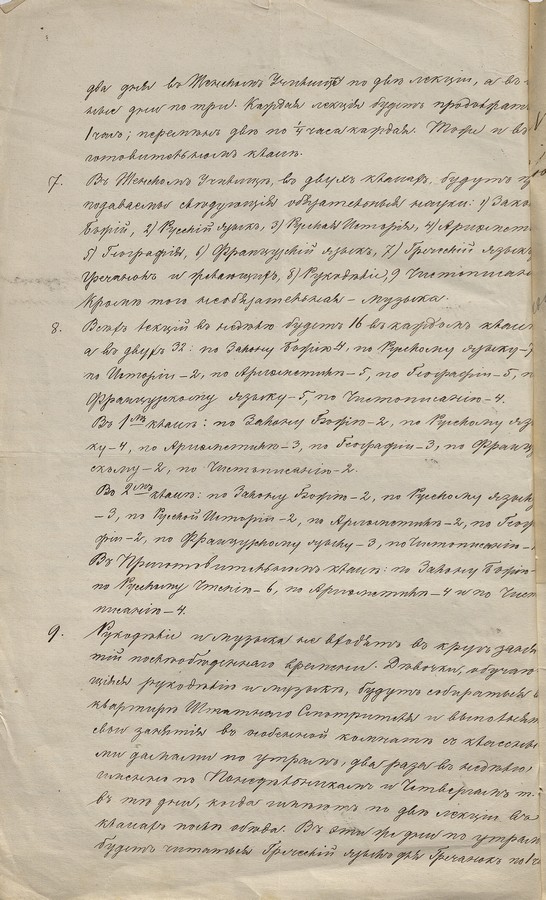 два дня въ Женскомъ Училищѣ по двѣ лекціи, а въ
ные дни по три. Каждая лекція будетъ продолжат
1 часъ; перемѣнъ двѣ по ¼ часа каждая. Тоже и въ
готовительномъ классѣ.
7. Въ Женскомъ Училищѣ, въ двухъ классахъ будутъ п
подаваемы слѣдующія обязательныя науки: 1) Зако
Божій, 2) Русскій языкъ, 3) Русская Исторія, 4) Ариѳмет
5) Географія, 6) Французскій языкъ, 7) Греческій языкъ
гречанокъ и желающихъ, 8) Рукодѣліе, 9 Чистописан
Кромѣ того необязательная – музыка.
8. Всѣхъ лекцій въ недѣлю будетъ 16 въ каждомъ клас
а въ двухъ 32: по Закону Божію – 4, по Русскому языку – 7
по Исторіи – 2, по Ариѳметикѣ – 5, по Географіи – 5, п
Французскому языку – 5, по Чистописанію – 4.
Въ 1мъ классѣ: по Закону Божію – 2, по Русскому язы
ку – 4, по Ариѳметикѣ – 3, по Географіи – 3, по Францу
скому – 2, по Чистописанію – 2.
Во 2мъ классѣ: по Закону Божію – 2, по Русскому языку
– 3, по Русской Исторіи – 2, по Ариѳметикѣ – 2, по Геогр
фіи – 2, по Французскому языку – 3, по Чистописанію –
Въ Приготовительномъ классѣ: по Закону Божію –
по Русскому Чтенію – 6, по Ариѳметикѣ – 4 и по Чист
писанію – 4.
9. Рукодѣліе и музыка не входятъ въ кругъ заня
тій послѣобѣденнаго времени. Дѣвочки, обучаю
щіяся рукодѣлію и музыкѣ, будутъ собираться в
квартирѣ Штатнаго Смотрителя и выполнят
свои занятія въ особенной комнатѣ съ классны
ми дамами по утрамъ, два раза въ недѣлю
именно по Понедѣльникамъ и Четвергамъ т.
въ тѣ дни, когда имѣютъ по двѣ лекціи въ
классахъ послѣ обѣда. Въ эти же дни по утрам
будетъ читаться Греческій языкъ для Гречанокъ по 1 ч